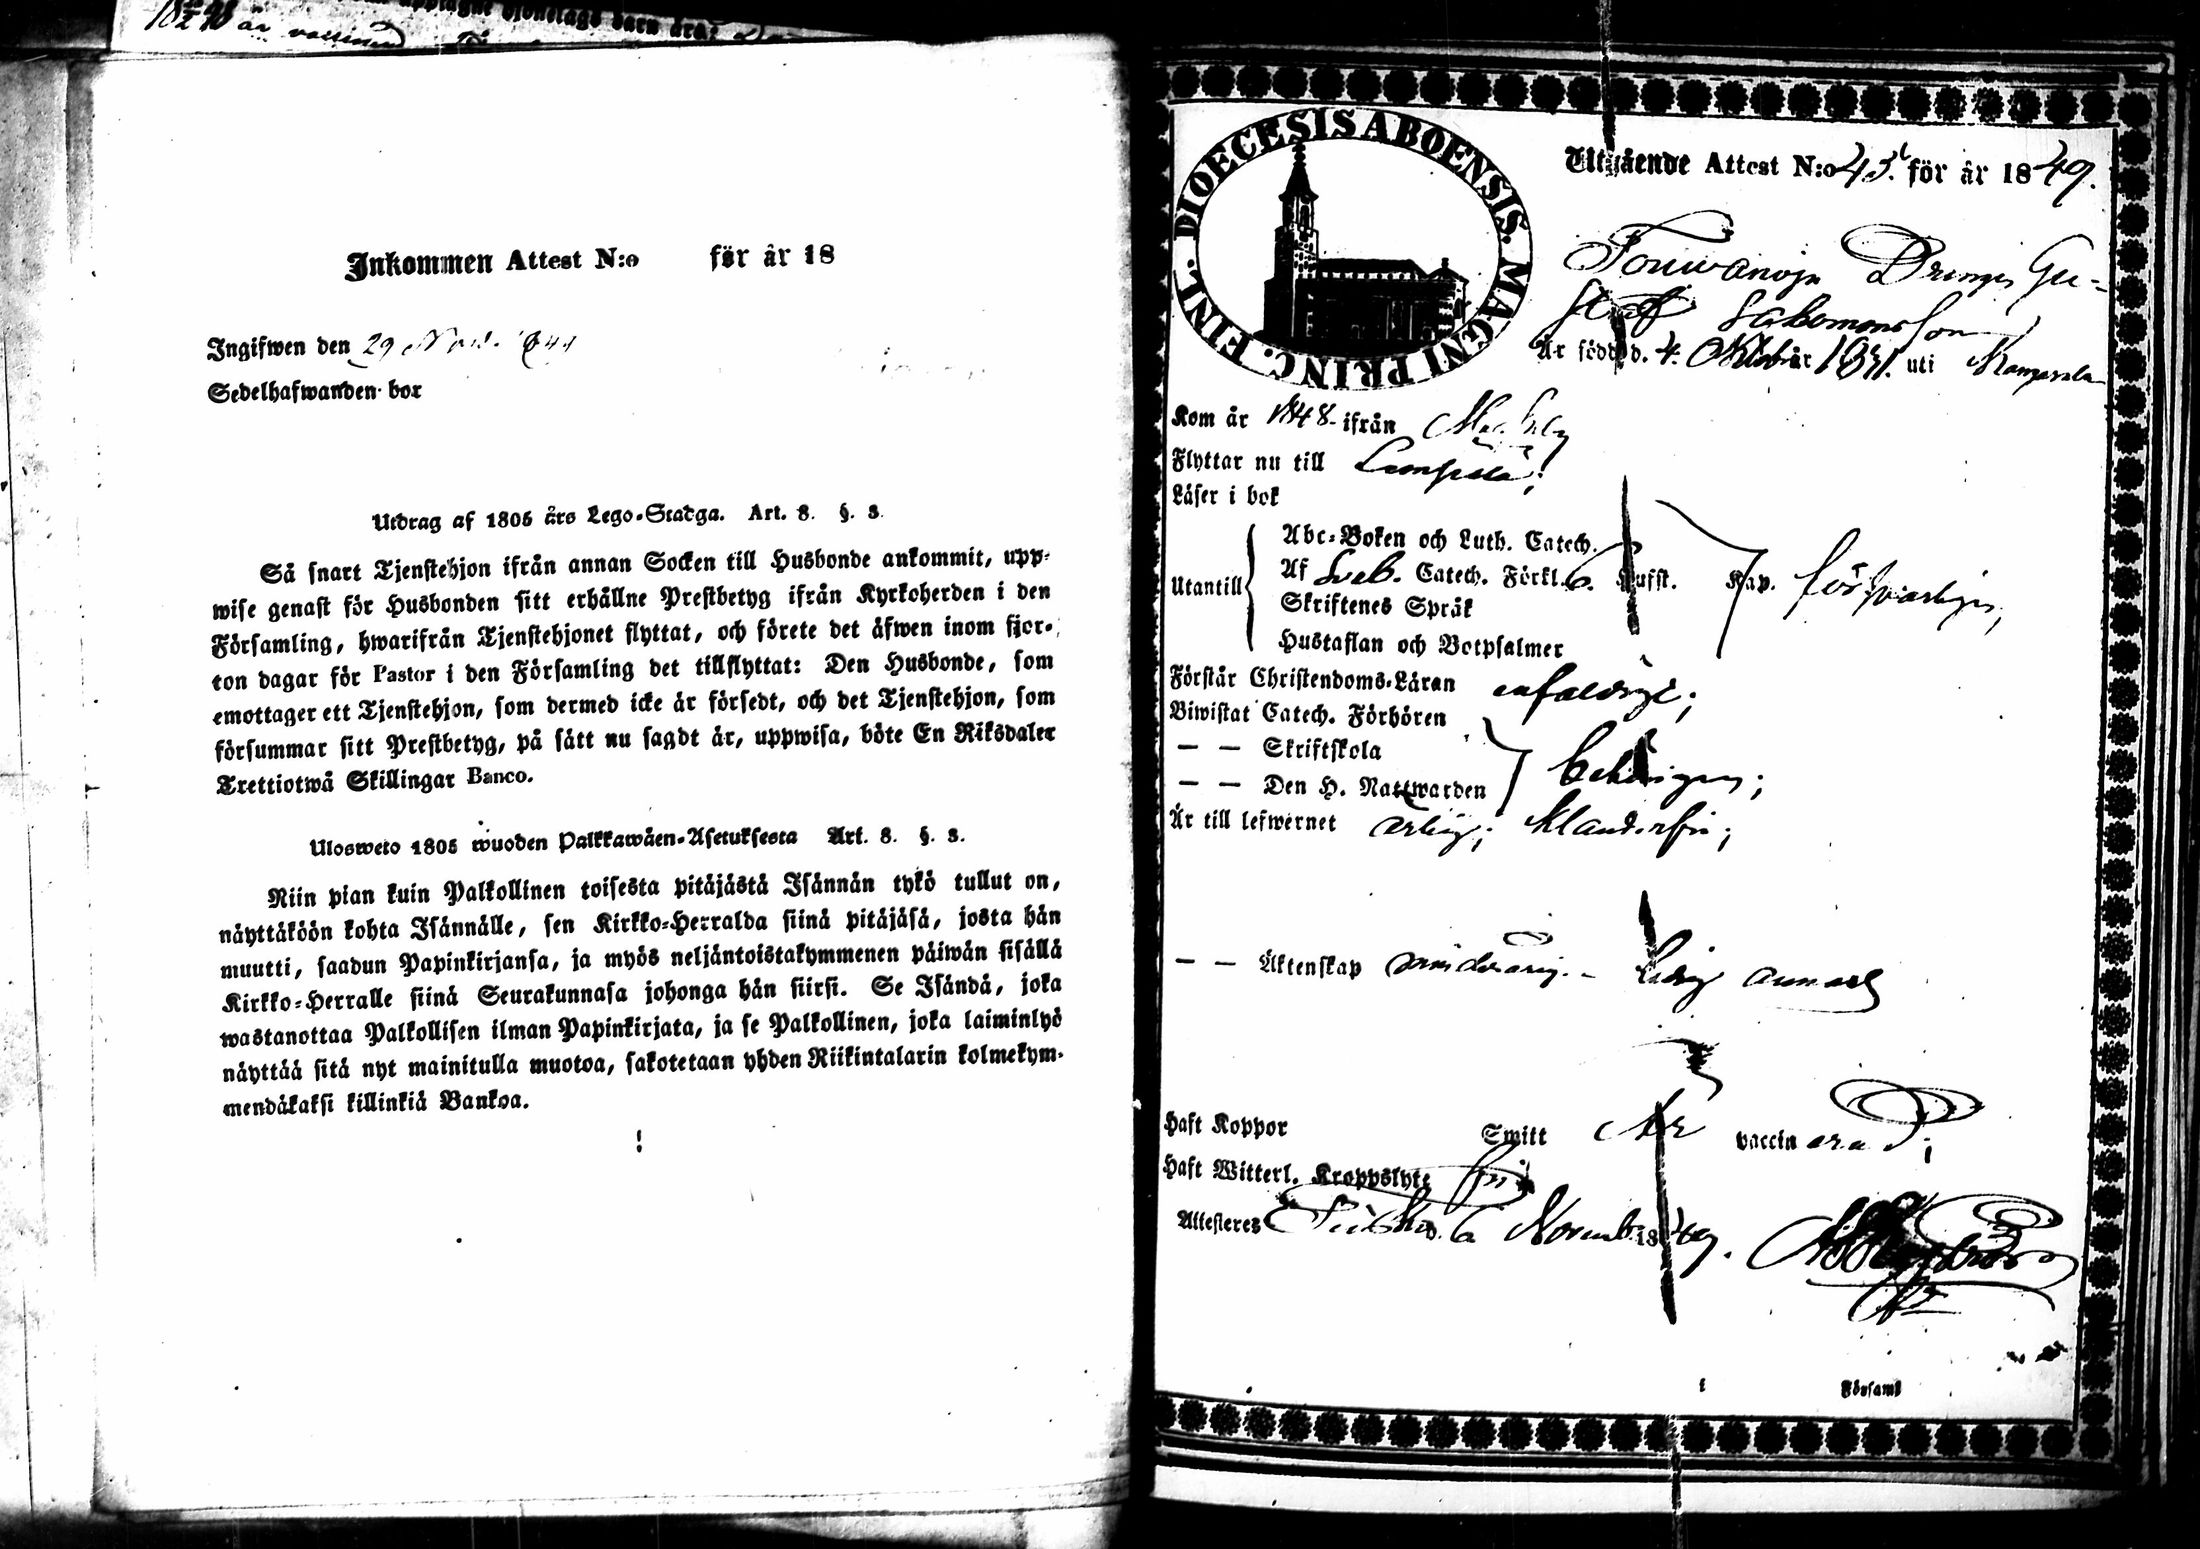 Inkommen Attest N:o för år 18
Ingifwen den 29 Nov.
Sedelhafwanden bor
Utdrag af 1805 års Lego-Stadga. Art. 8. §. 3.
Så snart Tjenstehjon ifrån annan Socken till Husbonde ankommit, upp-
wise genast för Husbonden sitt erhållne Prestbetyg ifrån Kyrkoherden i den
Församling, hwarifrån Tjenstehjonet flyttat, och förete det äfwen inom fjor-
ton dagar för Pastor i den Församling det tillflyttat: Den Husbonde, som
emottager ett Tjenstehjon, som dermed icke är försedt, och det Tjenstehjon, som
försummar sitt Prestbetyg, på sätt nu sagdt är, uppwisa, böte En Riksdaler
Trettiotwå Skillingar Banco.
Ulosweto 1805 wuoden Palkkawäen-Asetuksesta Art. 8. §. 3.
Niin pian kuin Palkollinen toisesta pitäjästä Isännän tykö tullut on,
näyttäköön kohta Isännälle, sen Kirkko-Herralda siinä pitäjäsä, josta hän
muutti, saadun Papinkirjansa, ja myös neljäntoistakymmenen päiwän sisällä
Kirkko-Herralle siinä Seurakunnasa johonga hän siirsi. Se Isändä, joka
wastanottaa Palkollisen ilman Papinkirjata, ja se Palkollinen, joka laiminlyö
näyttää sitä nyt mainitulla muotoa, sakotetaan yhden Riikintalarin kolmekym-
mendäkaksi killinkiä Bankoa.
DIOECESIS ABOENSIS. MAGNI PRINC. FINL.
Utgående Attest N:o 43. för år 1849.
Drengen Gu-
staf Salomonsson
Är född d. 4. Oktober 1831. uti Kangasala
Kom år 1848. ifrån
Flyttar nu till Lempälä;
Läser i bok
Abc-Boken och Luth. Catech.
Utantill Af Sveb. Catech. Förkl. 6. Hufst. Kap. försvarligen,
Skriftenes Språk
Hustaflan och Botpsalmer
Förstår Christendoms-Läran enfaldigt;
Biwistat Catech. Förhören
— — Skriftskola
— — Den H. Nattwarden behörigen;
Är till lefwernet ärlig; klanderfri;
— — Äktenskap minderårig. – ledig annars
Haft Koppor Smitt Är vaccinerad;
Haft Witterl. Kroppslyte fri
Attesteres d. 6 Novemb. 1849.
i Församl